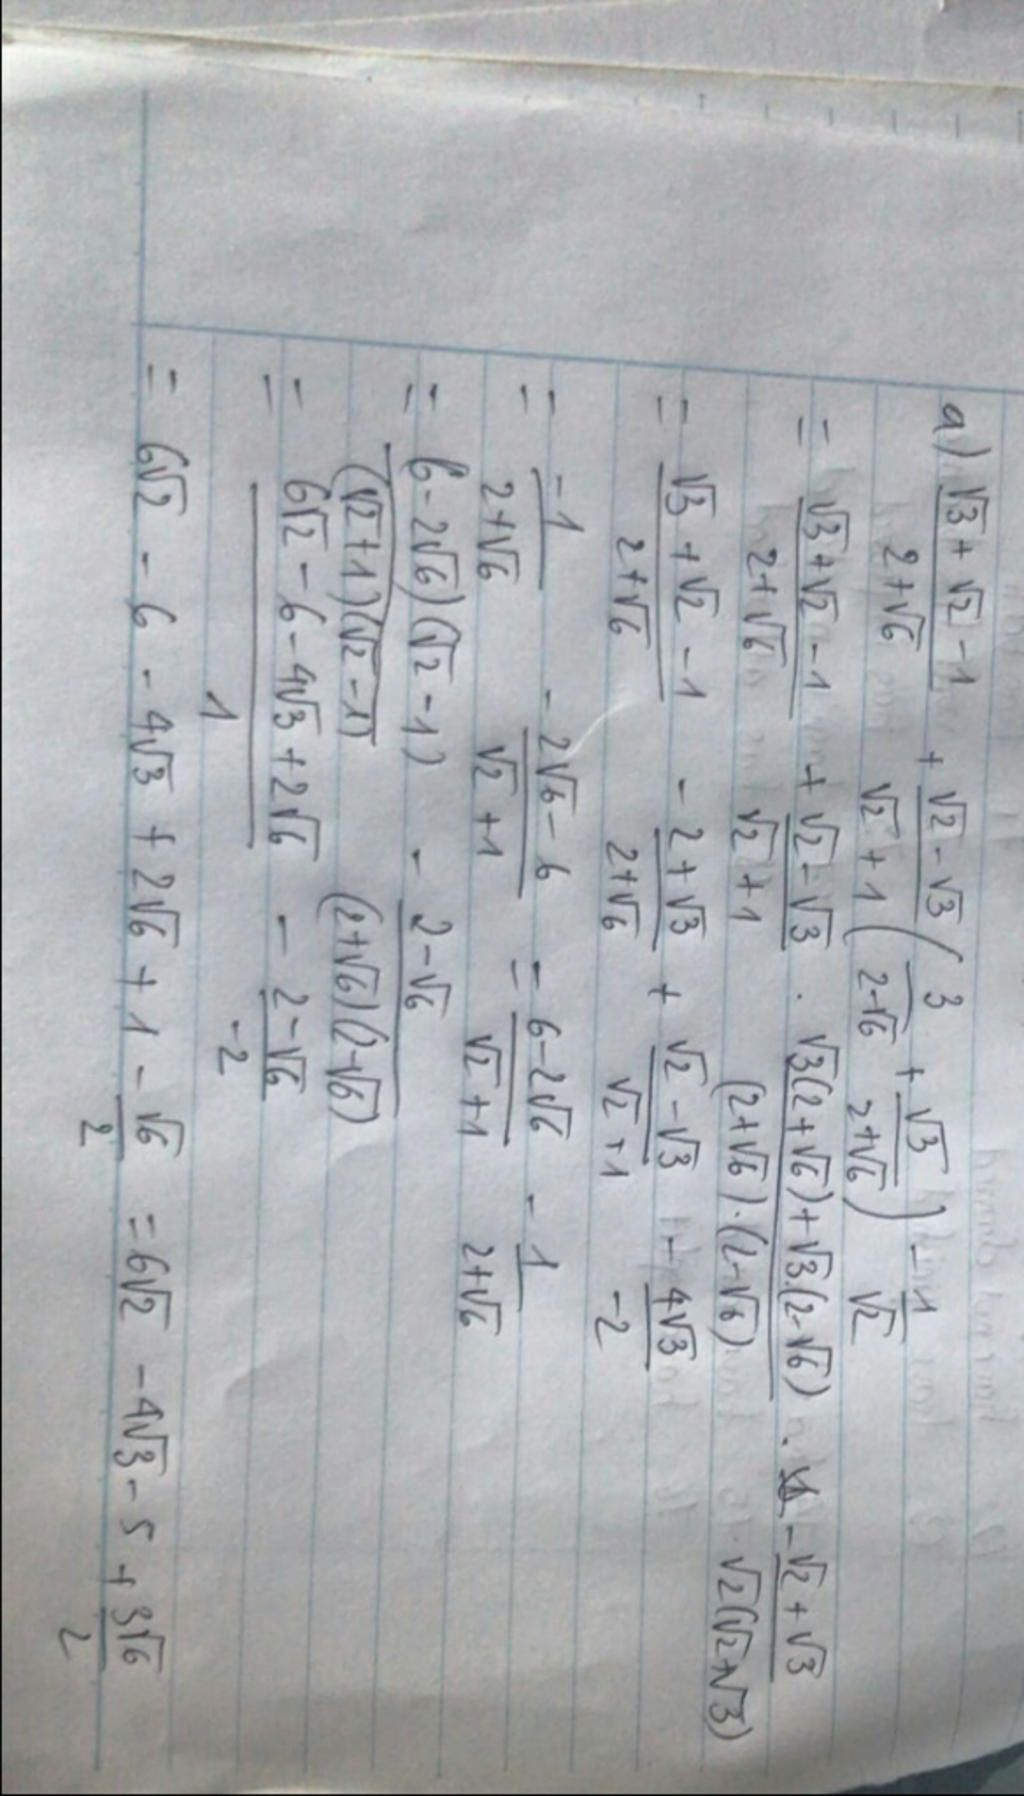 a) (√3 + √2 - 1)/(2+√6) + (√2 - √3)/(√2 + 1) (3/(2-√6) + √3/(2+√6)) - 1/√2
= (√3+√2 - 1)/(2+√6) + (√2 - √3)/(√2 + 1) · (√3(2+√6)+√3.(2-√6))/((2+√6).(2-√6)) - (√2 + √3)/(√2(√2+√3))
= (√3 + √2 - 1)/(2+√6) - (2+√3)/(2+√6) + (√2 - √3)/(√2 + 1) - 4√3/-2
= -1/(2+√6) - (2√6 - 6)/(√2 + 1) = (6-2√6)/(√2 + 1) - 1/(2+√6)
= (6-2√6)(√2 - 1)/((√2+1)(√2 - 1)) - (2-√6)/((2+√6)(2-√6))
= (6√2 - 6 - 4√3 + 2√6)/1 - (2-√6)/-2
= 6√2 - 6 - 4√3 + 2√6 + 1 - √6/2 = 6√2 - 4√3 - 5 + 3√6/2